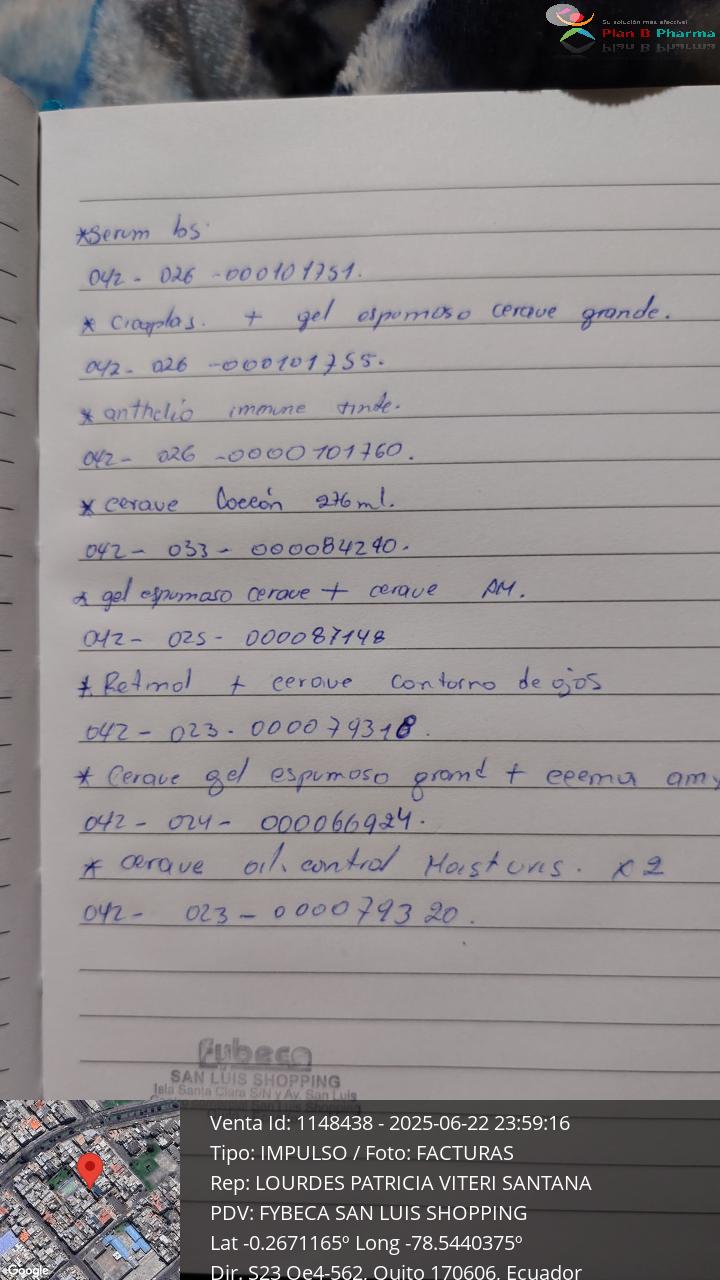 Su solución más efectiva!
Plan B Pharma
*Serum bs.
042 - 026 - 000101751.
* Cicaplas. + gel espumoso cerave grande.
042 - 026 - 000101755.
* anthelio immune tinde.
042 - 026 - 0000101760.
* cerave Loccón 276 ml.
042 - 033 - 000084240.
* gel espumaso cerave + cerave AM.
042 - 025 - 000087148
* Retinol + cerave contorno de ojos
042 - 023 - 000079318.
* Cerave gel espumoso grand +
042 - 024 - 000066924.
* cerave oil control Moisturis. x2
042 - 023 - 000079320.
fybeca
SAN LUIS SHOPPING
Isla Santa Clara S/N y Av. San Luis
Venta Id: 1148438 - 2025-06-22 23:59:16
Tipo: IMPULSO / Foto: FACTURAS
Rep: LOURDES PATRICIA VITERI SANTANA
PDV: FYBECA SAN LUIS SHOPPING
Lat -0.2671165º Long -78.5440375º
Dir. S23 Oe4-562, Quito 170606, Ecuador
Google